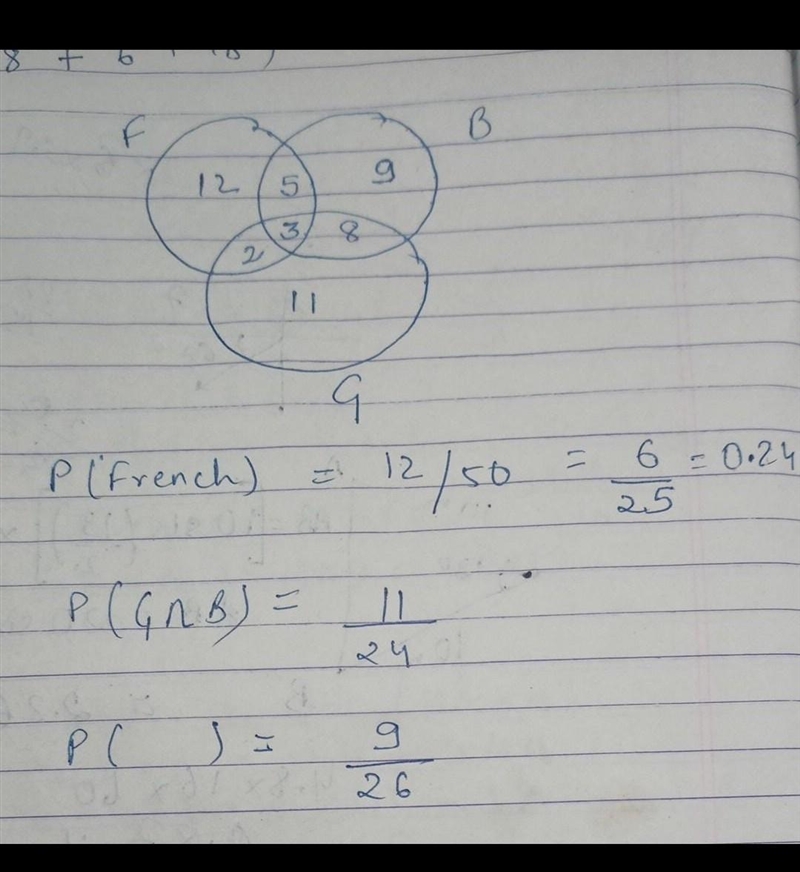 8 + 6 +
F B
12 5 9
3 8
2
11
G
P(French) = 12/50 = 6/25 = 0.24
P(G∩B) = 11/24
P( ) = 9/26